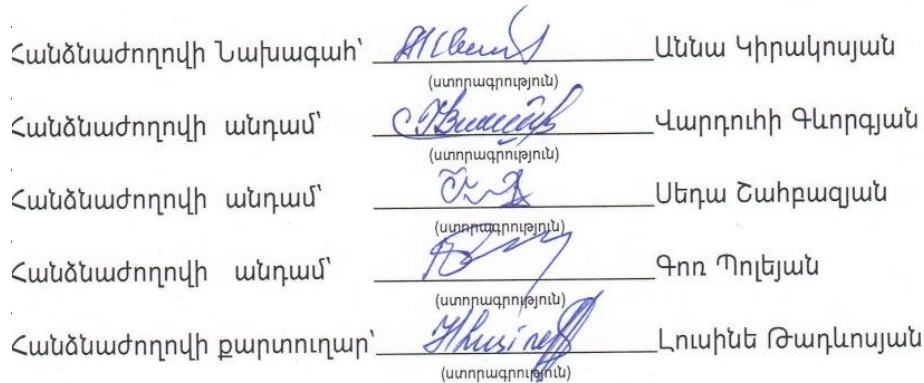 Հանձնաժողովի Նախագահ՝ Աննա Կիրակոսյան
(ստորագրություն)
Հանձնաժողովի անդամ՝ Վարդուհի Գևորգյան
(ստորագրություն)
Հանձնաժողովի անդամ՝ Սեդա Շահբազյան
(ստորագրություն)
Հանձնաժողովի անդամ՝ Գոռ Պոլեյան
(ստորագրություն)
Հանձնաժողովի քարտուղար՝ Լուսինե Թադևոսյան
(ստորագրություն)